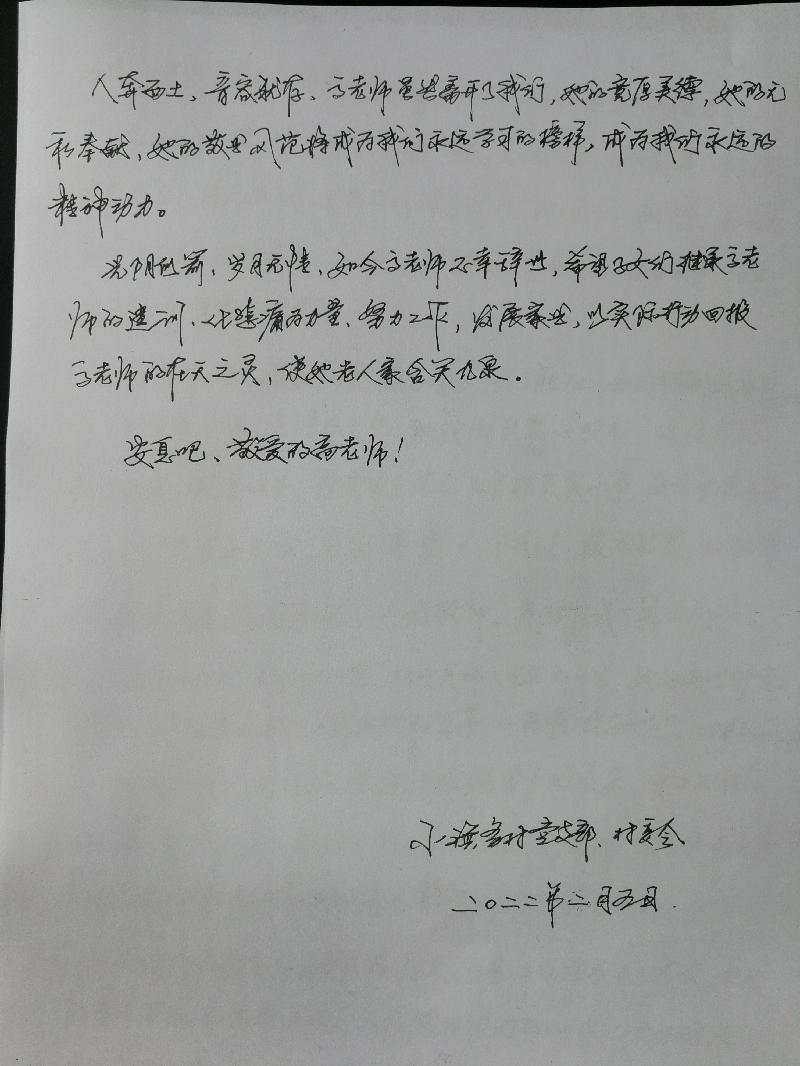 人奔西土、音容犹存、高老师虽然离开了我们，她的宽厚美德，她的无
私奉献，她的敬业风范将成为我们永远学习的榜样，成为我们永远的
精神动力。
光阴似箭、岁月无情、如今高老师不幸辞世，希望子女们继承高老
师的遗训、化悲痛为力量、努力工作，发展家业，以实际行动回报
高老师的在天之灵，使她老人家含笑九泉。
安息吧、敬爱的高老师！
村党支部、村委会
二〇二二年二月五日.